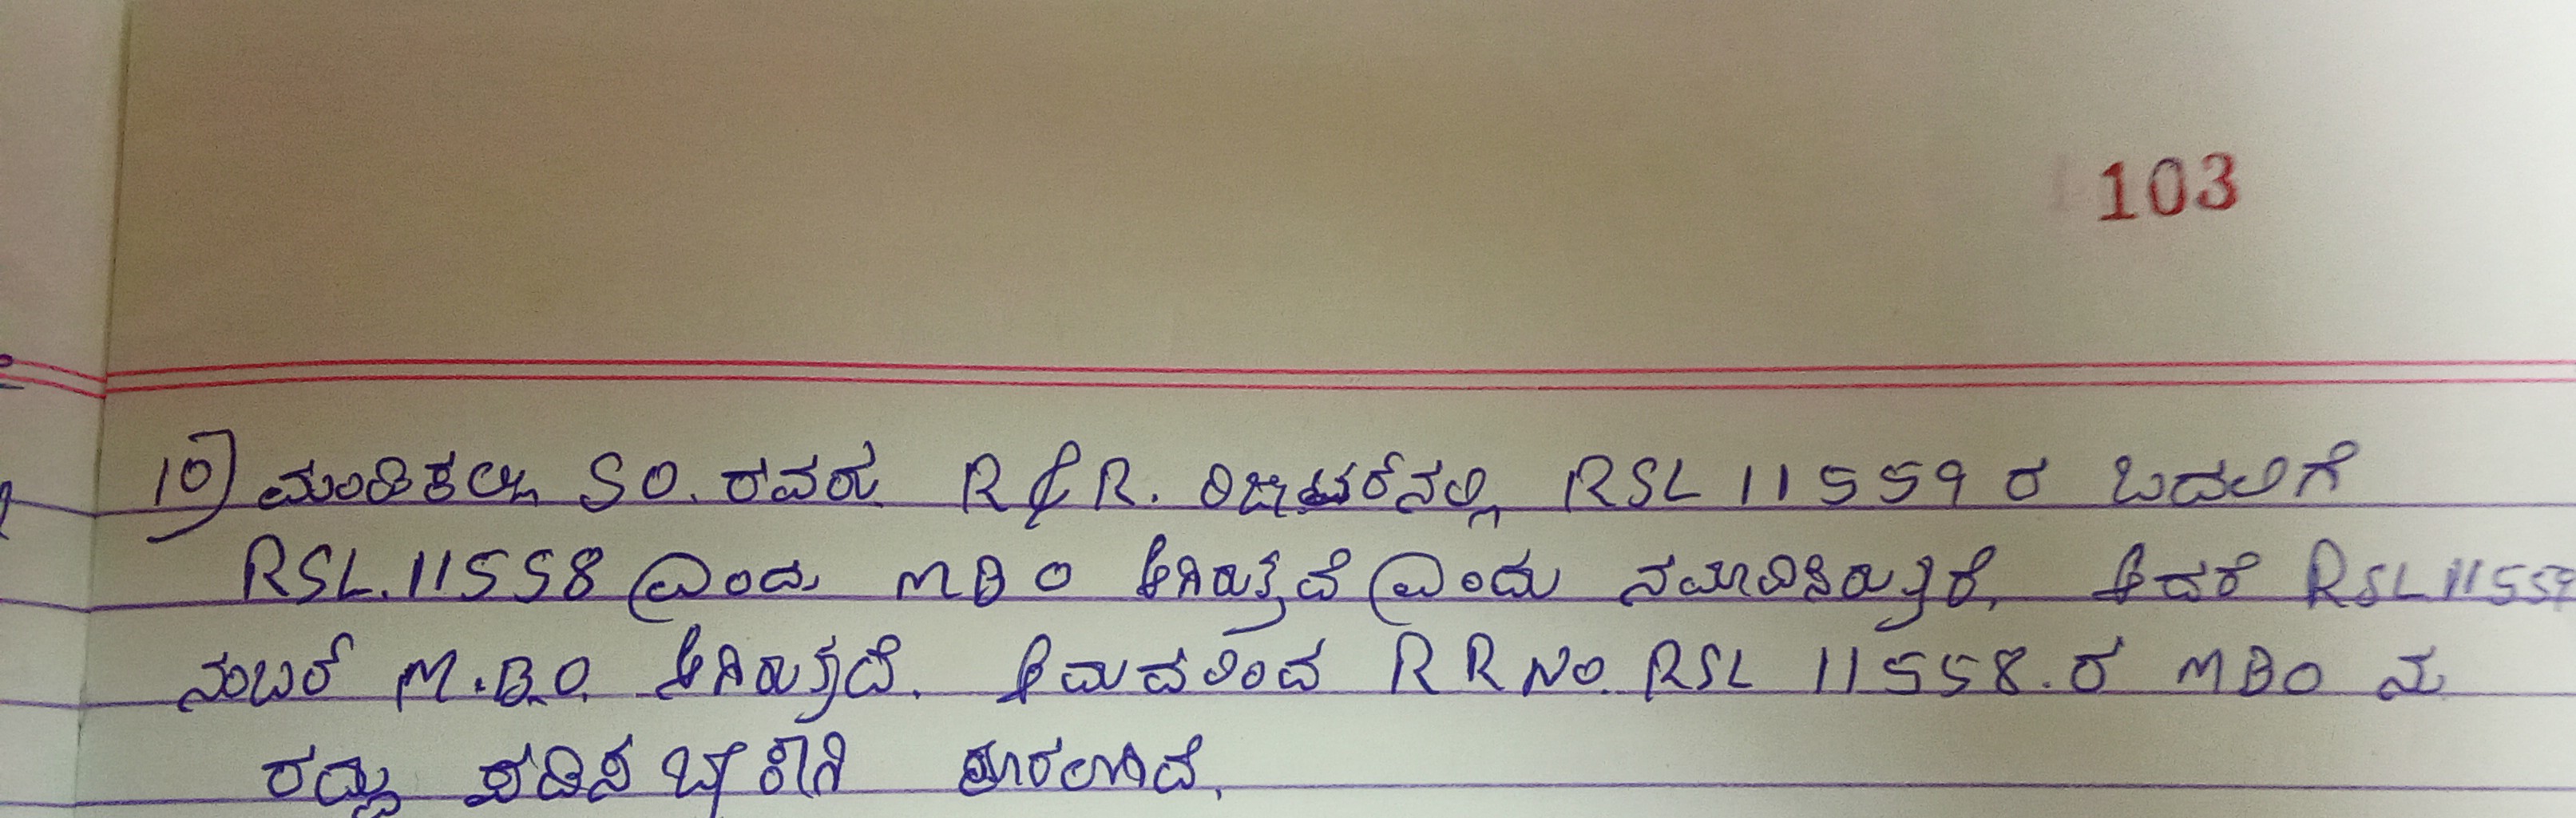 103
10) ಮಂಡಿಕಲ್ಲು SO. ರವರು R&R. ರಿಜಿಸ್ಟರ್‌ನಲ್ಲಿ RSL 11559 ರ ಬದಲಿಗೆ
RSL.11558 ಎಂದು MBO ಆಗಿರುತ್ತದೆ ಎಂದು ನಮೂದಿಸಿರುತ್ತಾರೆ, ಆದರೆ RSL 11559
ನಂಬರ್ M.B.O. ಆಗಿರುತ್ತದೆ. ಆದುದರಿಂದ RR No. RSL 11558. ರ MBO ನು
ರದ್ದು ಪಡಿಸ ಬೇಕಾಗಿ